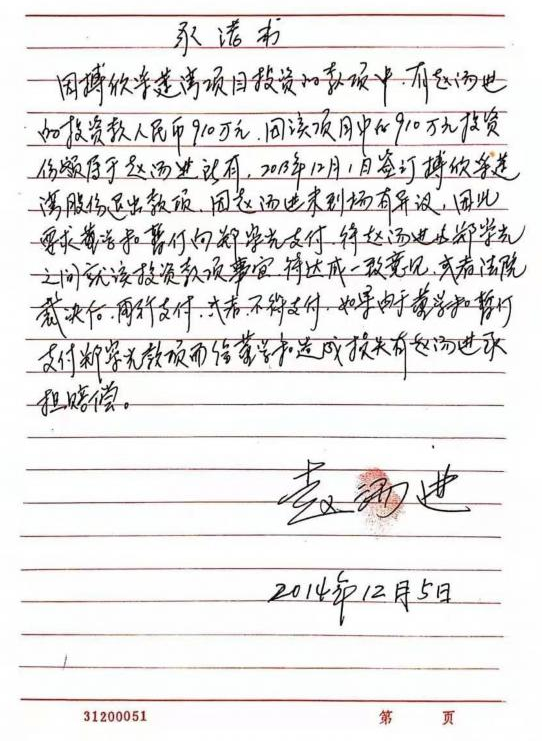 承诺书
因搏欣掌莲湾项目投资的款项中，有赵汤进
的投资款人民币910万元，因该项目中的910万元投资
份额属于赵汤进所有，2013年12月1日签订搏欣掌莲
湾股份退出款项，因赵汤进未到场有异议，因此
要求黄学和暂付向郑学光支付，待赵汤进与郑学光
之间就该投资款项事宜，待达成一致意见，或者法院
裁决后，再行支付，或者，不得支付，如果由于黄学和暂付
支付郑学光款项而给黄学和造成损失有赵汤进承
担赔偿。
赵汤进
2014年12月5日
31200051 第 页